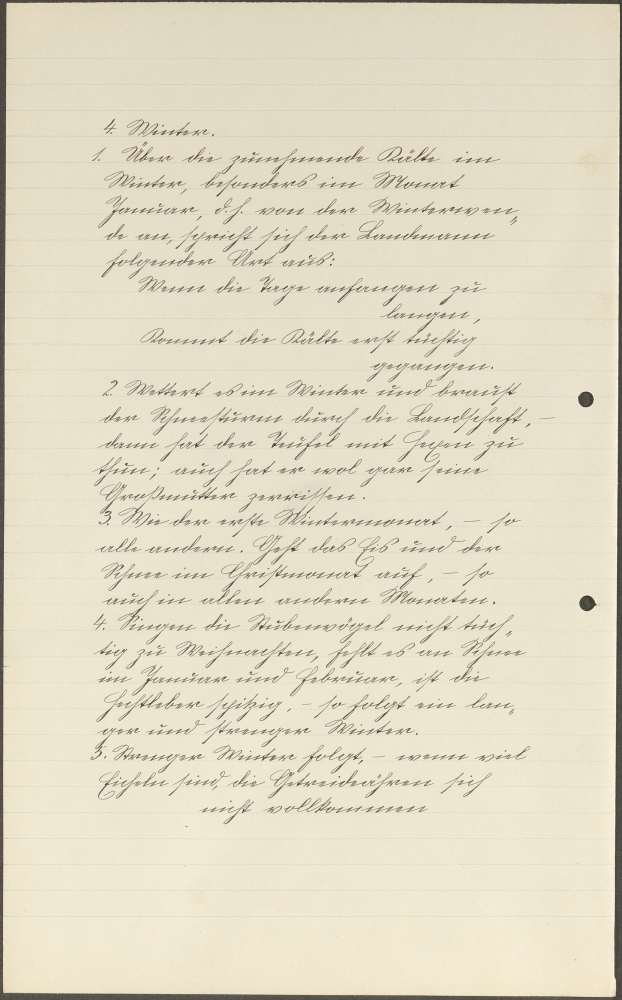 4. Winter.
1. Über die zunehmende Kälte im
Winter, besonders im Monat
Januar, d. h. von der Winterwen„
de an, spricht sich der Landmann
folgender Art aus:
Wenn die Tage anfangen zu
langen,
Kommt die Kälte erst tüchtig
gegangen.
2. Wettert es im Winter und braust
der Schneesturm durch die Landschaft, –
dann hat der Teufel mit Hexen zu
thun; auch hat er wol gar seine
Großmutter zerrissen.
3. Wie der erste Wintermonat, – so
alle andern. Geht das Eis und der
Schnee im Christmonat auf, – so
auch in allen andern Monaten.
4. Singen die Stubenvögel nicht tüch„
tig zu Weihnachten, fehlt es an Schnee
im Januar und Februar, ist die
Hechtleber spitzig, – so folgt ein lan„
ger und strenger Winter.
5. Strenger Winter folgt, – wenn viel
Eicheln sind, die Getreideähren sich
nicht vollkommen